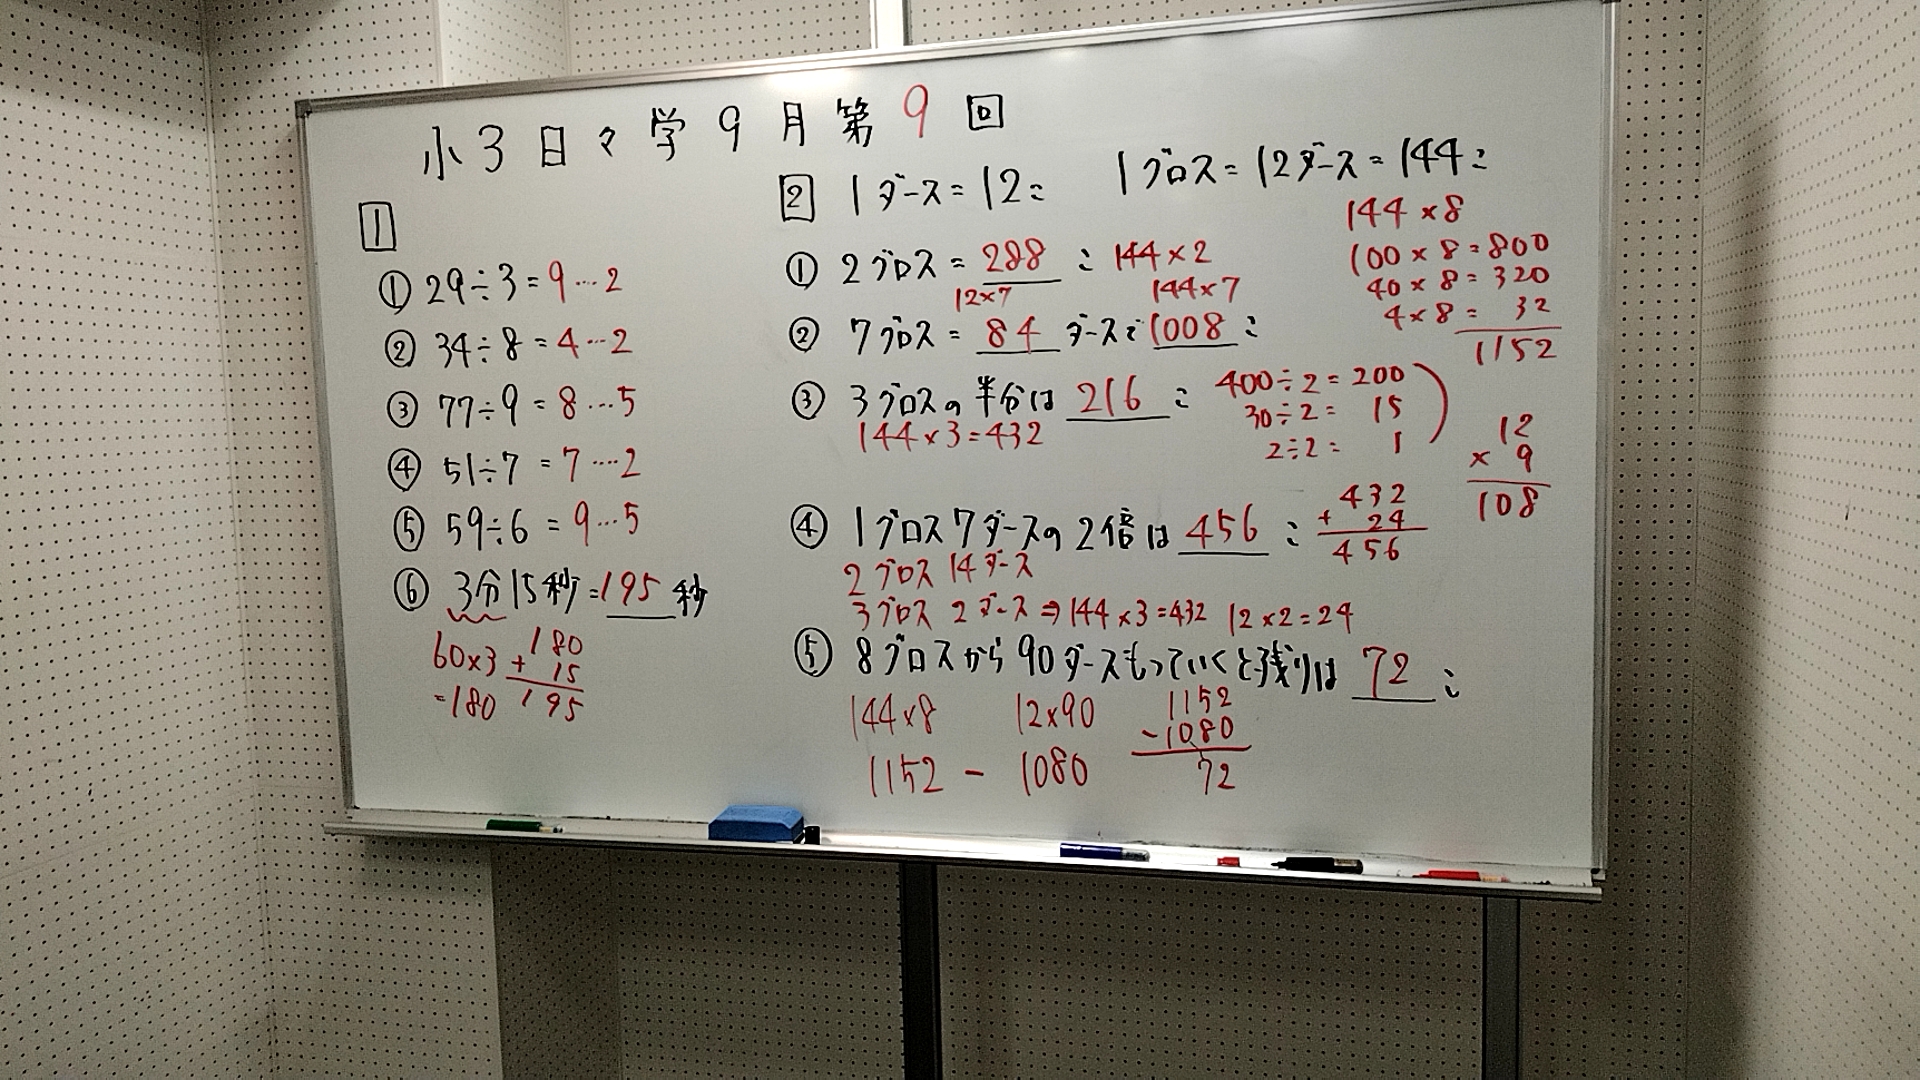 小3日々学9月第9回
1
① 29÷3=9…2
② 34÷8=4…2
③ 77÷9=8…5
④ 51÷7=7…2
⑤ 59÷6=9…5
⑥ 3分15秒=195秒
60×3
=180
180
+ 15
195
2 1ダース=12こ 1グロス=12ダース=144こ
① 2グロス=288こ 144×2
12×7 144×7
② 7グロス=84ダースで1008こ
③ 3グロスの半分は216こ
144×3=432
400÷2=200
30÷2=15
2÷2=1
④ 1グロス7ダースの2倍は456こ
2グロス14ダース
3グロス2ダース⇒144×3=432 12×2=24
432
+ 24
456
⑤ 8グロスから90ダースもっていくと残りは72こ
144×8 12×90
1152 - 1080
1152
-1080
72
144×8
100×8=800
40×8=320
4×8=32
1152
12
× 9
108